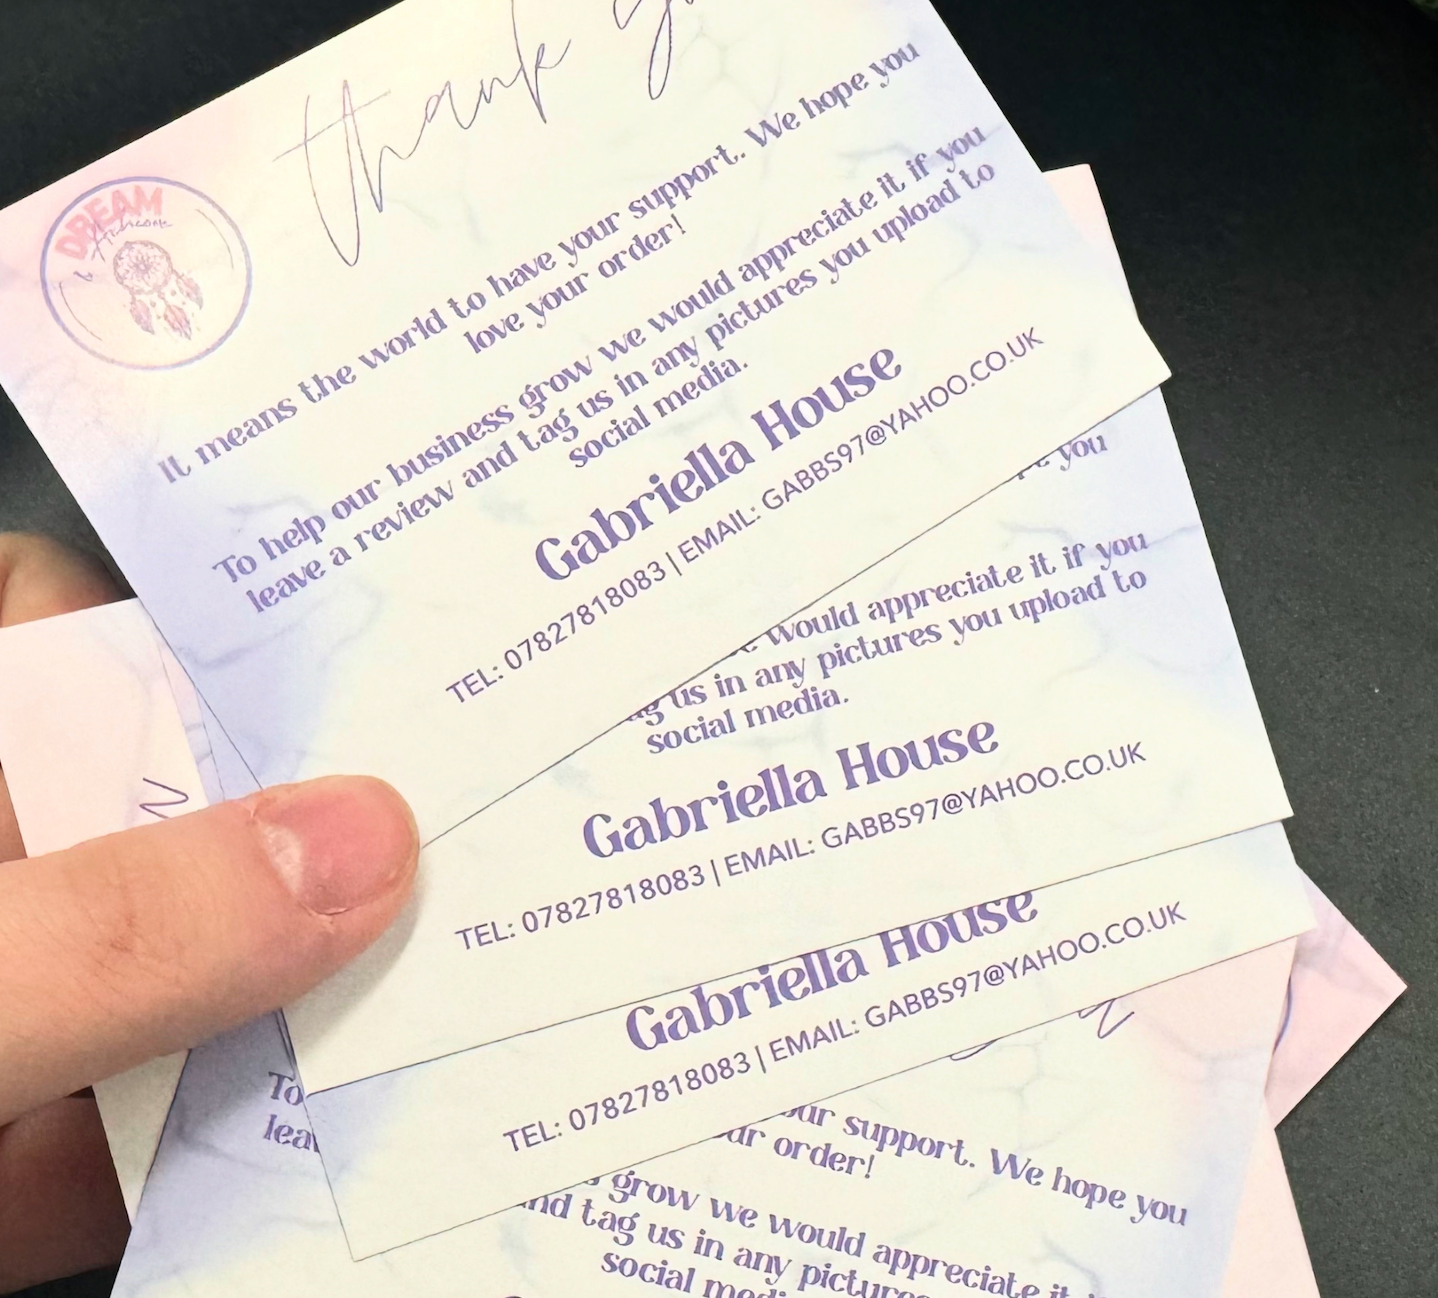 thank
DREAM
It means the world to have your support. We hope you
love your order!
To help our business grow we would appreciate it if you
leave a review and tag us in any pictures you upload to
social media.
Gabriella House
TEL: 07827818083 | EMAIL: GABBS97@YAHOO.CO.UK
you
would appreciate it if you
us in any pictures you upload to
social media.
Gabriella House
TEL: 07827818083 | EMAIL: GABBS97@YAHOO.CO.UK
Gabriella House
TEL: 07827818083 | EMAIL: GABBS97@YAHOO.CO.UK
To
support. We hope you
order!
grow we would appreciate it
tag us in any
social